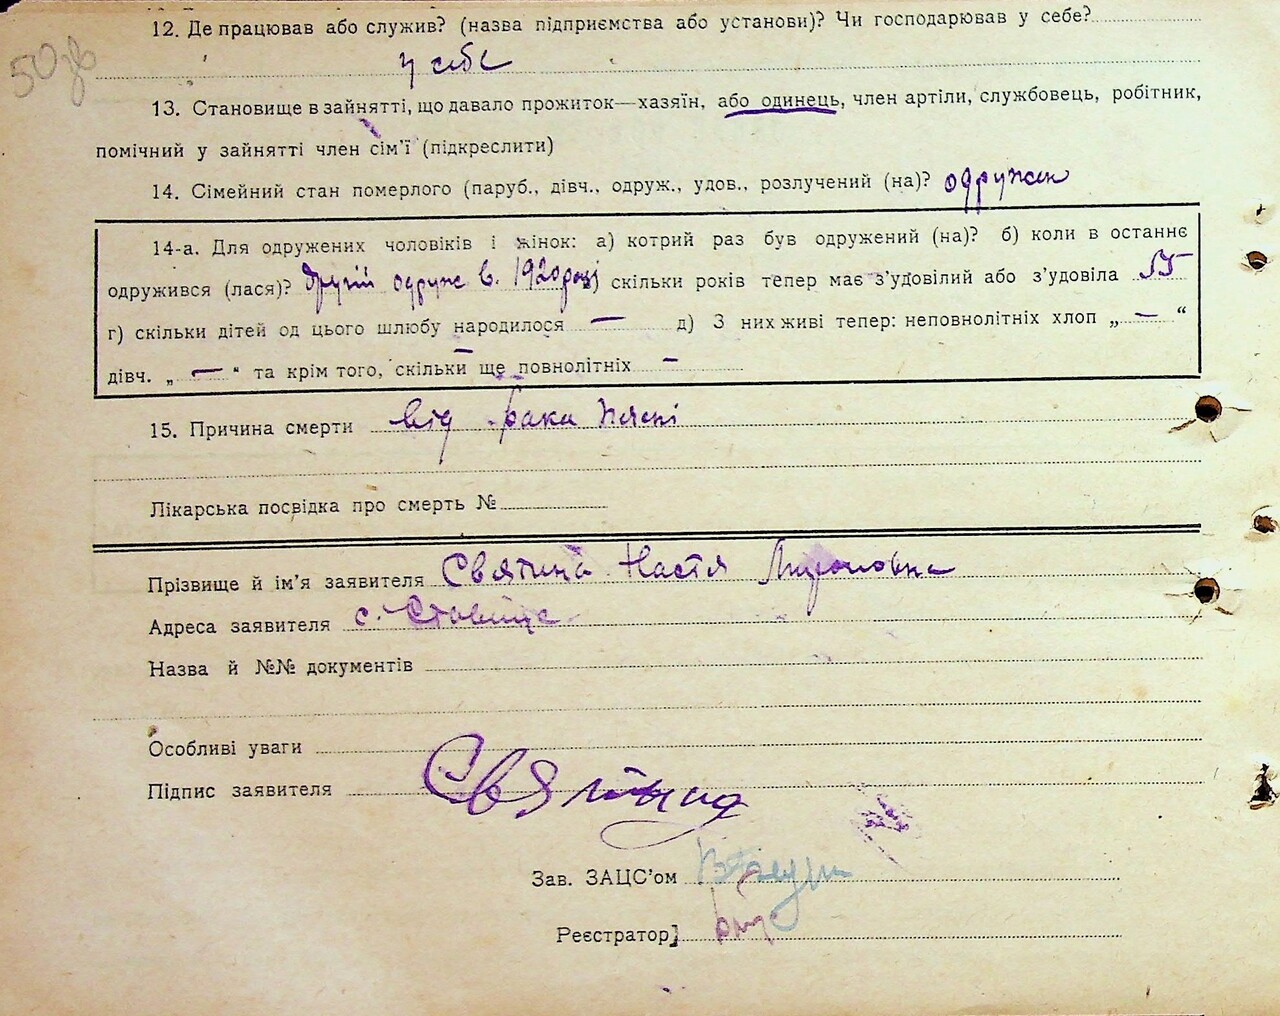 50 зв
12. Де працював або служив? (назва підприємства або установи)? Чи господарював у себе?
у себе
13. Становище в зайнятті, що давало прожиток—хазяїн, або одинець, член артілі, службовець, робітник,
помічний у зайнятті член сім'ї (підкреслити)
14. Сімейний стан померлого (паруб., дівч., одруж., удов., розлучений (на)? одружен
14-а. Для одружених чоловіків і жінок: а) котрий раз був одружений (на)? б) коли в останнє
одружився (лася)? другій одруж в. 1920 році) скільки років тепер має з'удовілий або з'удовіла 55
г) скільки дітей од цього шлюбу народилося — д) З них живі тепер: неповнолітніх хлоп „ — “
дівч. „ — “ та крім того, скільки ще повнолітніх —
15. Причина смерти від рака
Лікарська посвідка про смерть №
Прізвище й ім'я заявителя Святина Настя Мироновна
Адреса заявителя с. Ставище
Назва й №№ документів
Особливі уваги
Підпис заявителя Святина
Зав. ЗАЦС'ом
Реєстратор